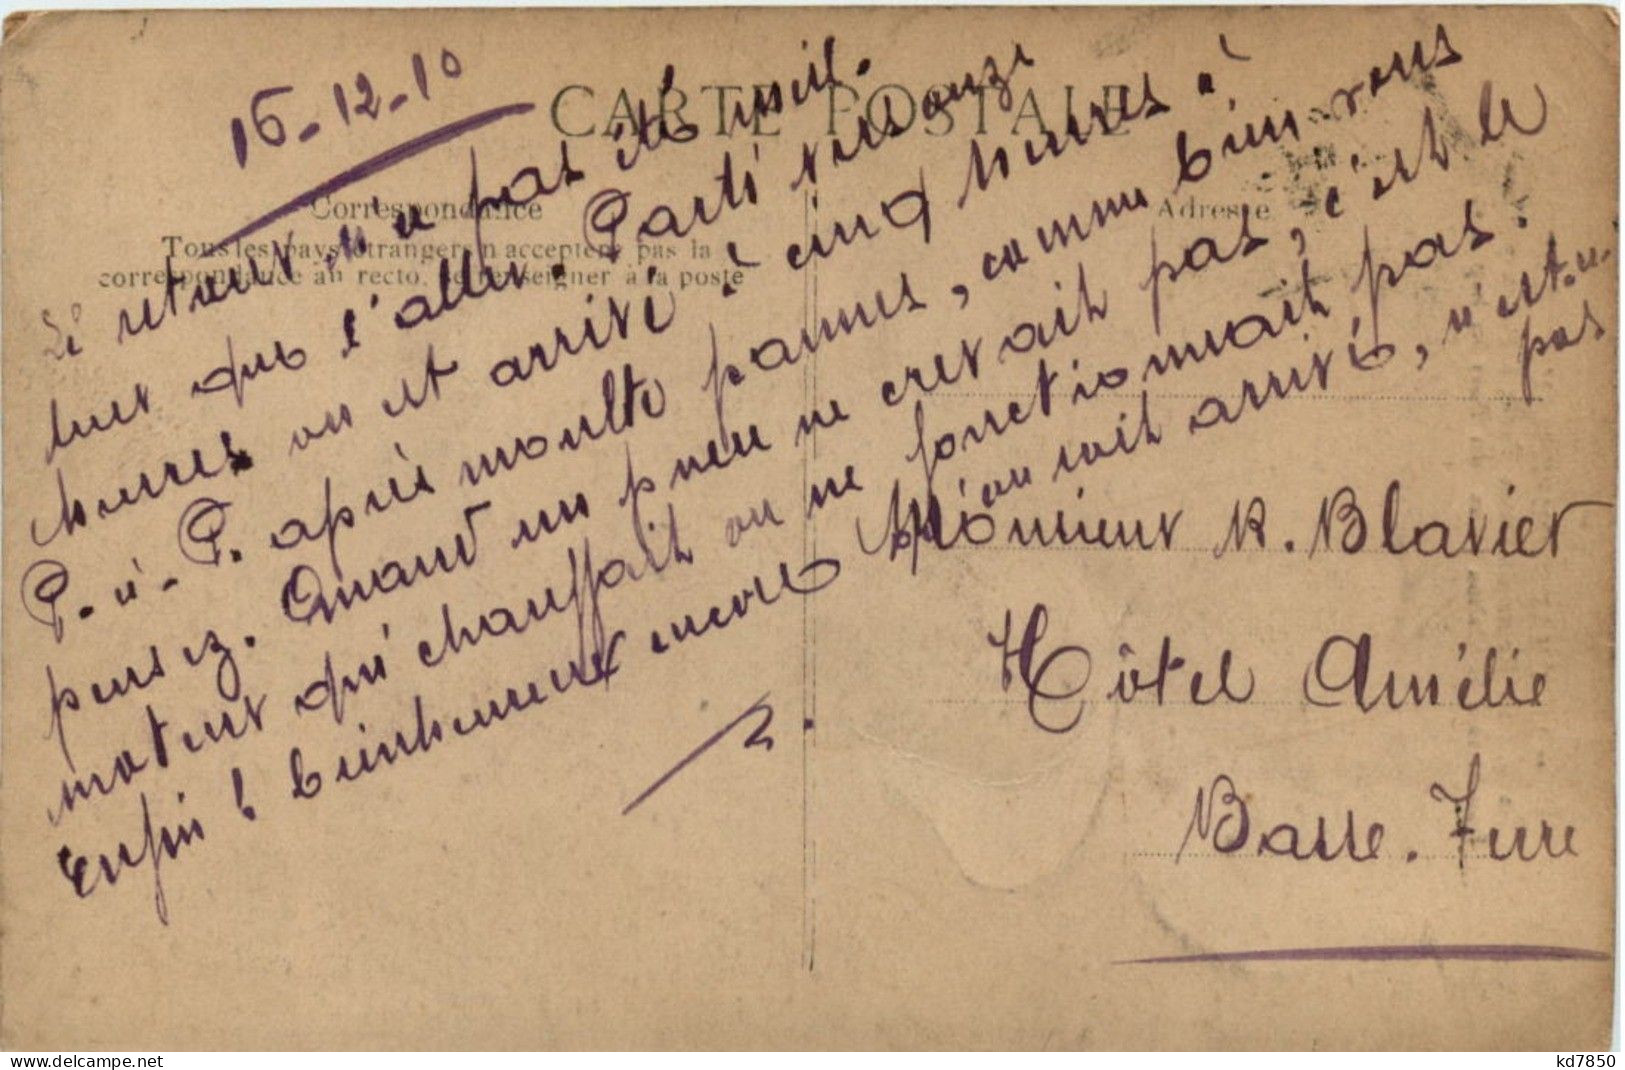 16-12-10
CARTE POSTALE
Correspondance
Tous les pays étrangers n'acceptent pas la
correspondance au recto, se renseigner à la poste
Adresse
Le retour n'a pas été meil.
leur que l'aller. Parti vers onze
heures on est arrivé à cinq heures à
P.-à-P. après moulte pannes, comme bien vous
pensez. Quand un pneu ne crevait pas, c'est le
moteur qui chauffait ou ne fonctionnait pas.
Enfin! bienheureux encore qu'on soit arrivé, n'est-ce
pas
Monsieur R. Blavier
Hôtel Amélie
Basse-Terre
kd7850